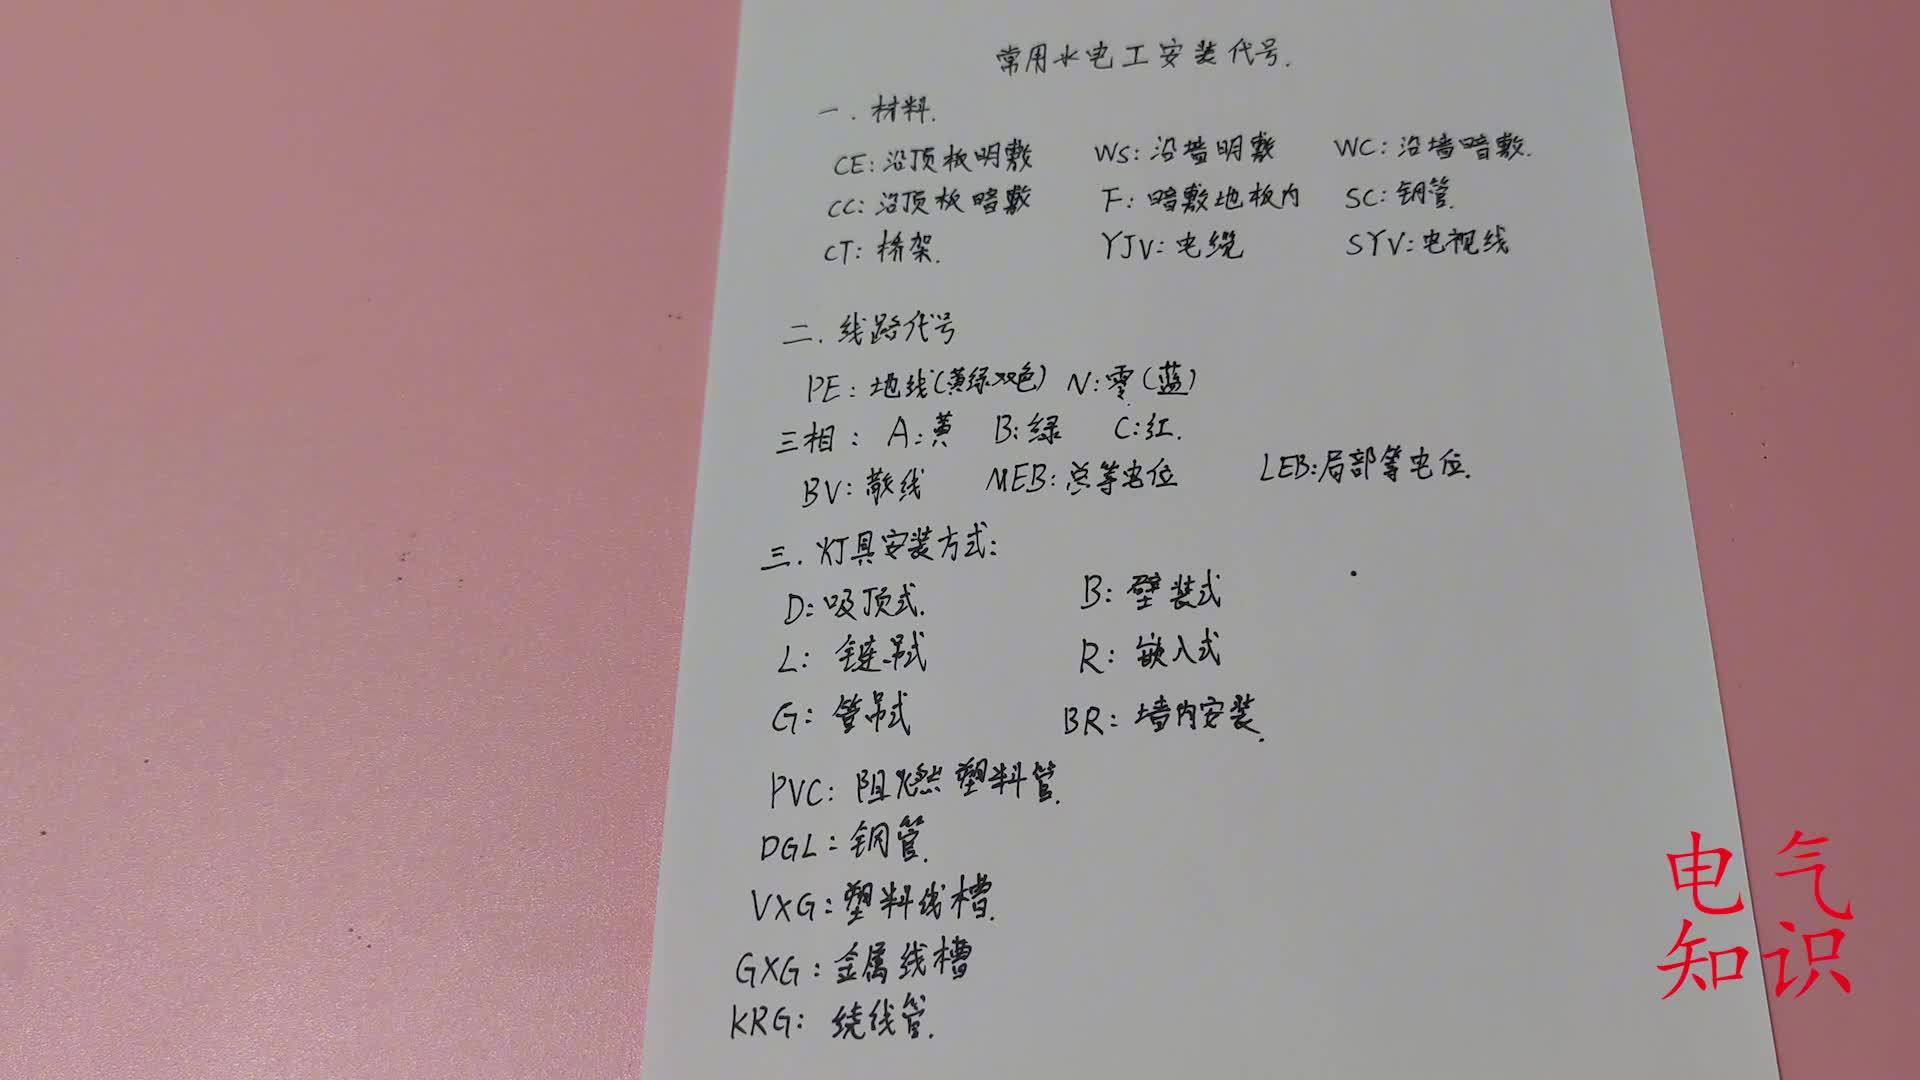 常用水电工安装代号.
一.材料.
CE:沿顶板明敷 WS:沿墙明敷 WC:沿墙暗敷.
CC:沿顶板暗敷 F:暗敷地板内 SC:钢管.
CT:桥架. YJV:电缆 SYV:电视线
二.线路代号
PE:地线(黄绿双色) N:零(蓝)
三相: A:黄 B:绿 C:红.
BV:散线 MEB:总等电位 LEB:局部等电位.
三.灯具安装方式:
D:吸顶式. B:壁装式
L:链吊式 R:嵌入式
G:管吊式 BR:墙内安装.
PVC:阻燃塑料管.
DGL:钢管.
VXG:塑料线槽.
GXG:金属线槽
KRG:绕线管.
电气
知识